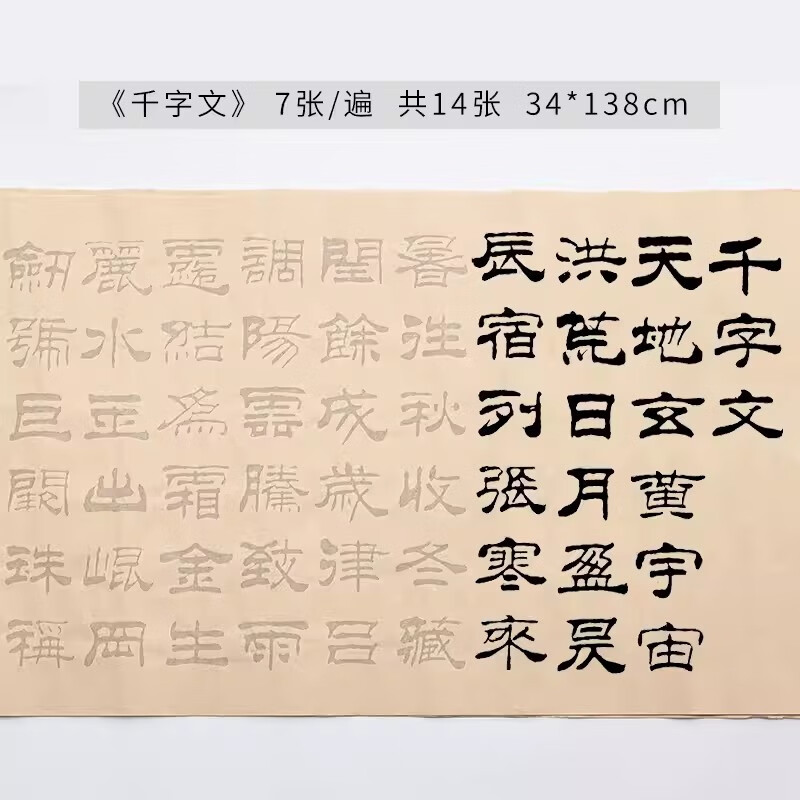 《千字文》 7张/遍 共14张 34*138cm
千字文
天地玄黄宇宙
洪荒日月盈昃
辰宿列張寒來
暑往秋收冬藏
閏餘成歲律吕
調陽雲騰致雨
露結爲霜金生
麗水玉出崐岡
劒號巨闕珠稱